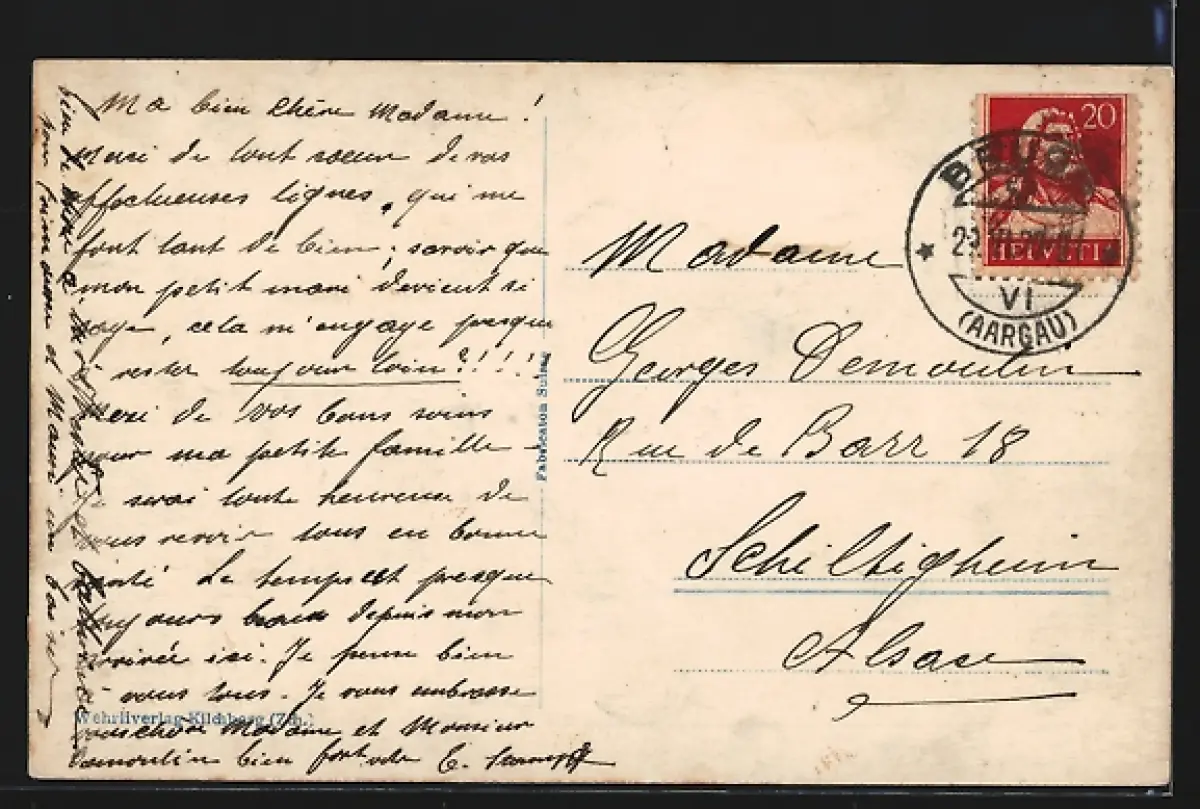 Ma bien chère Madame!
Merci de tout coeur de vos
affectueuses lignes, qui me
font tant de bien; savoir que
mon petit mari devient si
sage, cela m'engage presque
à rester toujours loin?!!!!
Merci de vos bons soins
pour ma petite famille
Je serai toute heureuse de
vous revoir tous en bonne
santé Le temps est presque
toujours beau depuis mon
arrivée ici. Je pense bien
à vous tous. Je vous embrasse
chère Madame et Monsieur
Demoulin bien fort
bien de
et Maussi un baiser
Fabrication Suisse
Wehrliverlag Kilchberg (Zch.)
20
HELVETIA
BRUGG
VI
(AARGAU)
Madame
Georges Demoulin
Rue de Barr 18
Schiltigheim
Alsace